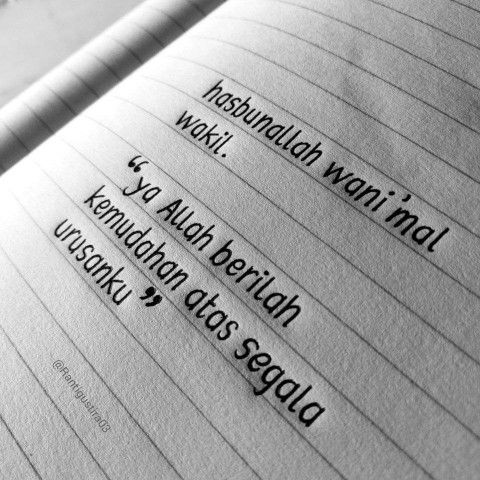 hasbunallah wani'mal
wakil.
“ya Allah berilah
kemudahan atas segala
urusanku”
@Rantigustira03